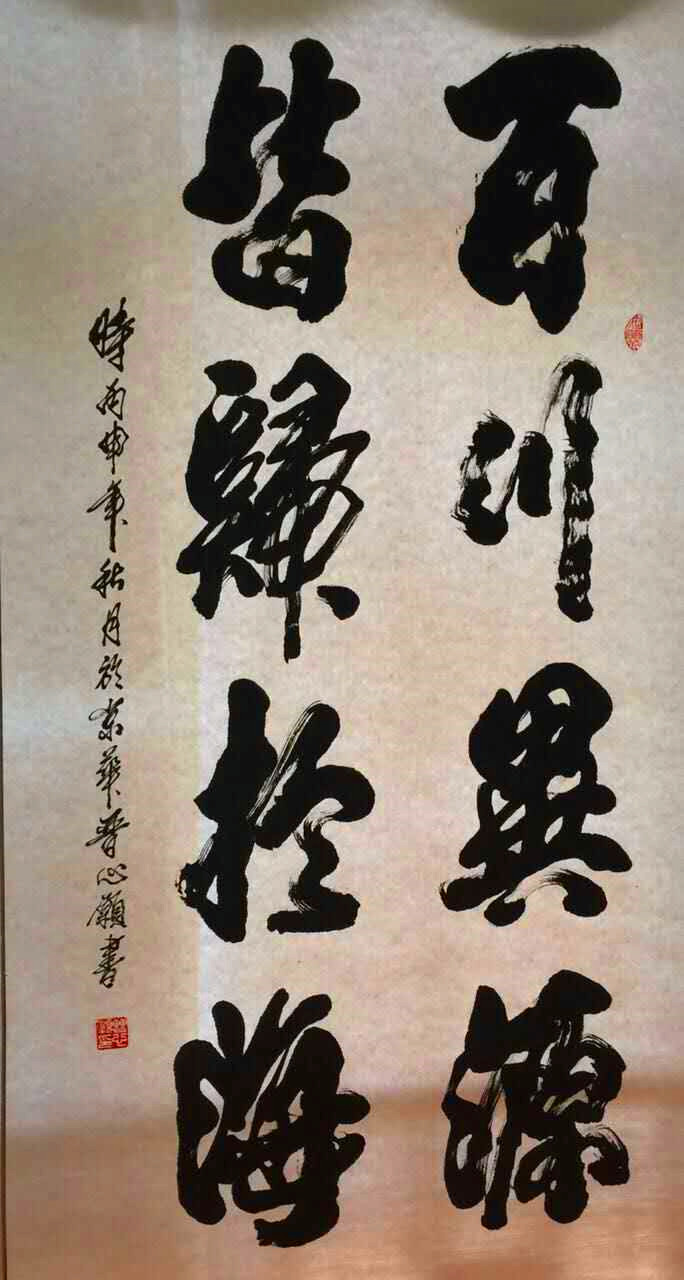 百川異源
皆歸於海
時丙申年秋月於京華曹心願書